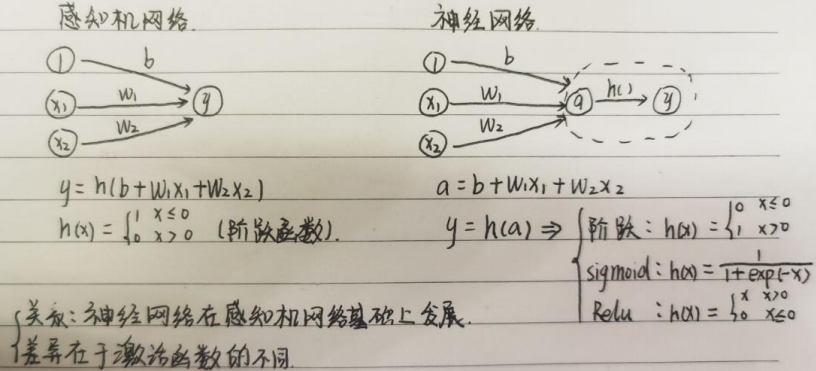 感知机网络.
1
b
x₁
W₁
y
x₂
W₂
y=h(b+W₁x₁+W₂x₂)
h(x)={1 x≤0
0 x>0 (阶跃函数).
神经网络.
1
b
x₁
W₁
a
h()
y
x₂
W₂
a=b+W₁x₁+W₂x₂
y=h(a)⇒{阶跃:h(x)={0 x≤0
1 x>0
sigmoid:h(x)=1/(1+exp(-x))
Relu:h(x)={x x>0
0 x≤0
{关系:神经网络在感知机网络基础上发展.
差异在于激活函数的不同.